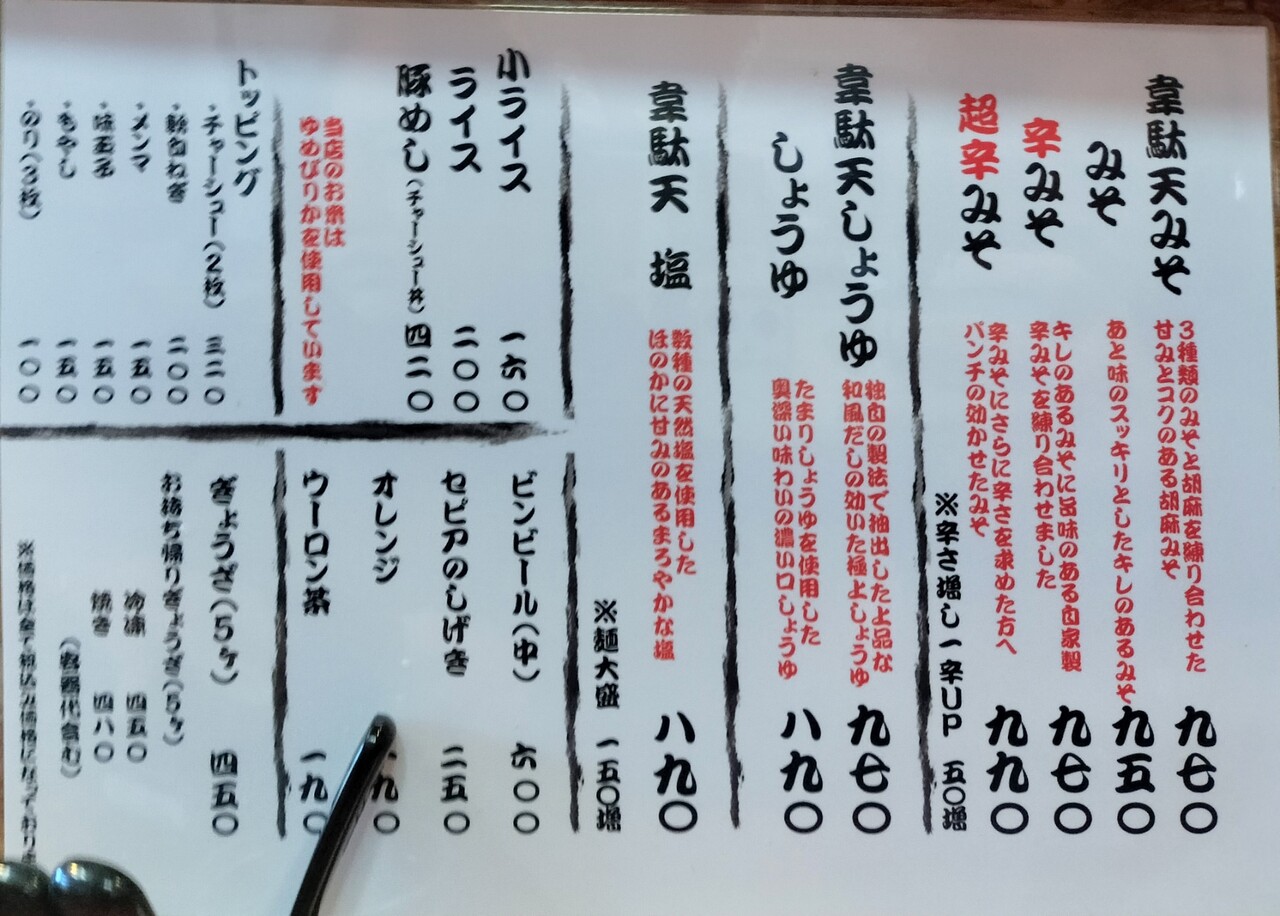 韋駄天みそ
3種類のみそと胡麻を練り合わせた
甘みとコクのある胡麻みそ
九七〇
みそ
あと味のスッキリとしたキレのあるみそ
九五〇
辛みそ
キレのあるみそに旨味のある自家製
辛みそを練り合わせました
九七〇
超辛みそ
辛みそにさらに辛さを求めた方へ
パンチの効かせたみそ
九九〇
※辛さ増し一辛UP 五〇増
韋駄天しょうゆ
独自の製法で抽出した上品な
和風だしの効いた極上しょうゆ
九七〇
しょうゆ
たまりしょうゆを使用した
奥深い味わいの濃い口しょうゆ
八九〇
韋駄天 塩
数種の天然塩を使用した
ほのかに甘みのあるまろやかな塩
八九〇
※麺大盛 一五〇増
小ライス 一六〇
ライス 二〇〇
豚めし(チャーシュー丼) 四二〇
当店のお米は
ゆめぴりかを使用しています
トッピング
・チャーシュー(2枚) 三二〇
・軟白ねぎ 二〇〇
・メンマ 一五〇
・味玉子 一五〇
・もやし 一五〇
・のり(3枚) 一〇〇
ビンビール(中) 六〇〇
セピアのしげき 二五〇
オレンジ 一九〇
ウーロン茶 一九〇
ぎょうざ(5ヶ) 四五〇
お持ち帰りぎょうざ(5ヶ)
冷凍 四五〇
焼き 四八〇
(容器代含む)
※価格は全て税込み価格になっており